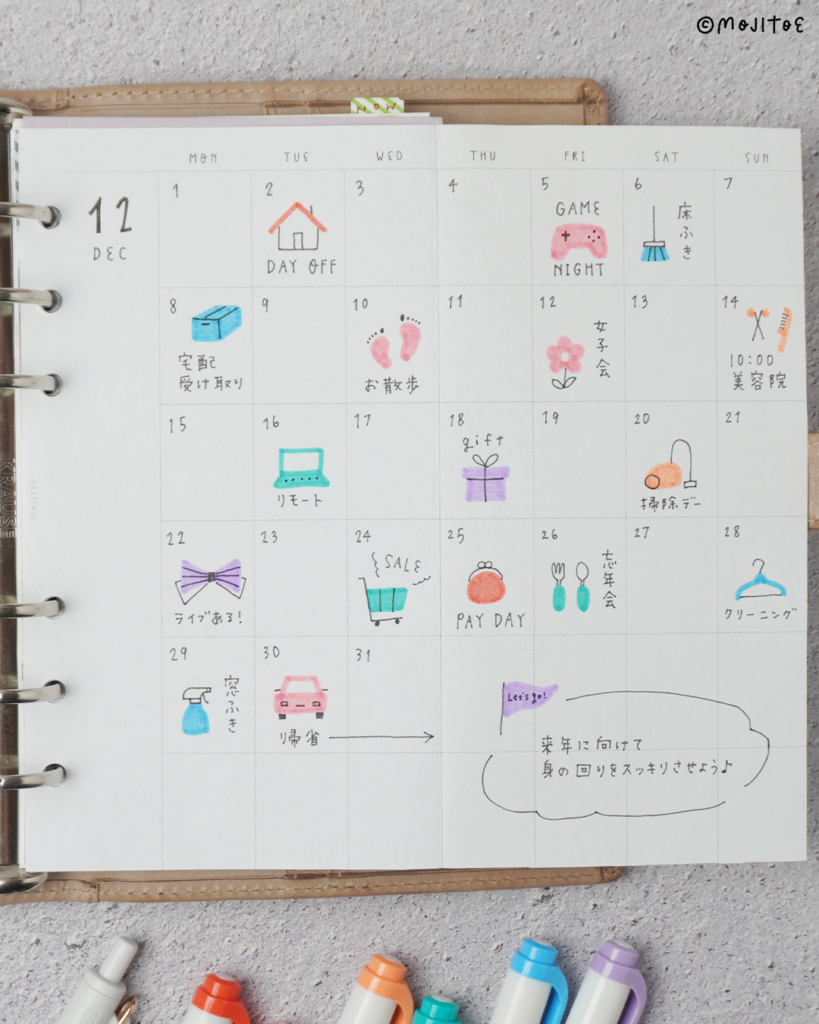 ©MOJITOE
NOW
MON TUE WED THU FRI SAT SUN
12
DEC
1 2 3 4 5 6 7
DAY OFF
GAME
NIGHT
床ふき
8 9 10 11 12 13 14
宅配
受け取り
お散歩
女子会
10:00
美容院
15 16 17 18 19 20 21
リモート
gift
掃除デー
22 23 24 25 26 27 28
ライブある!
SALE
PAY DAY
忘年会
クリーニング
29 30 31
窓ふき
帰省
Let's go!
来年に向けて
身の回りをスッキリさせよう♪
KRAUSE